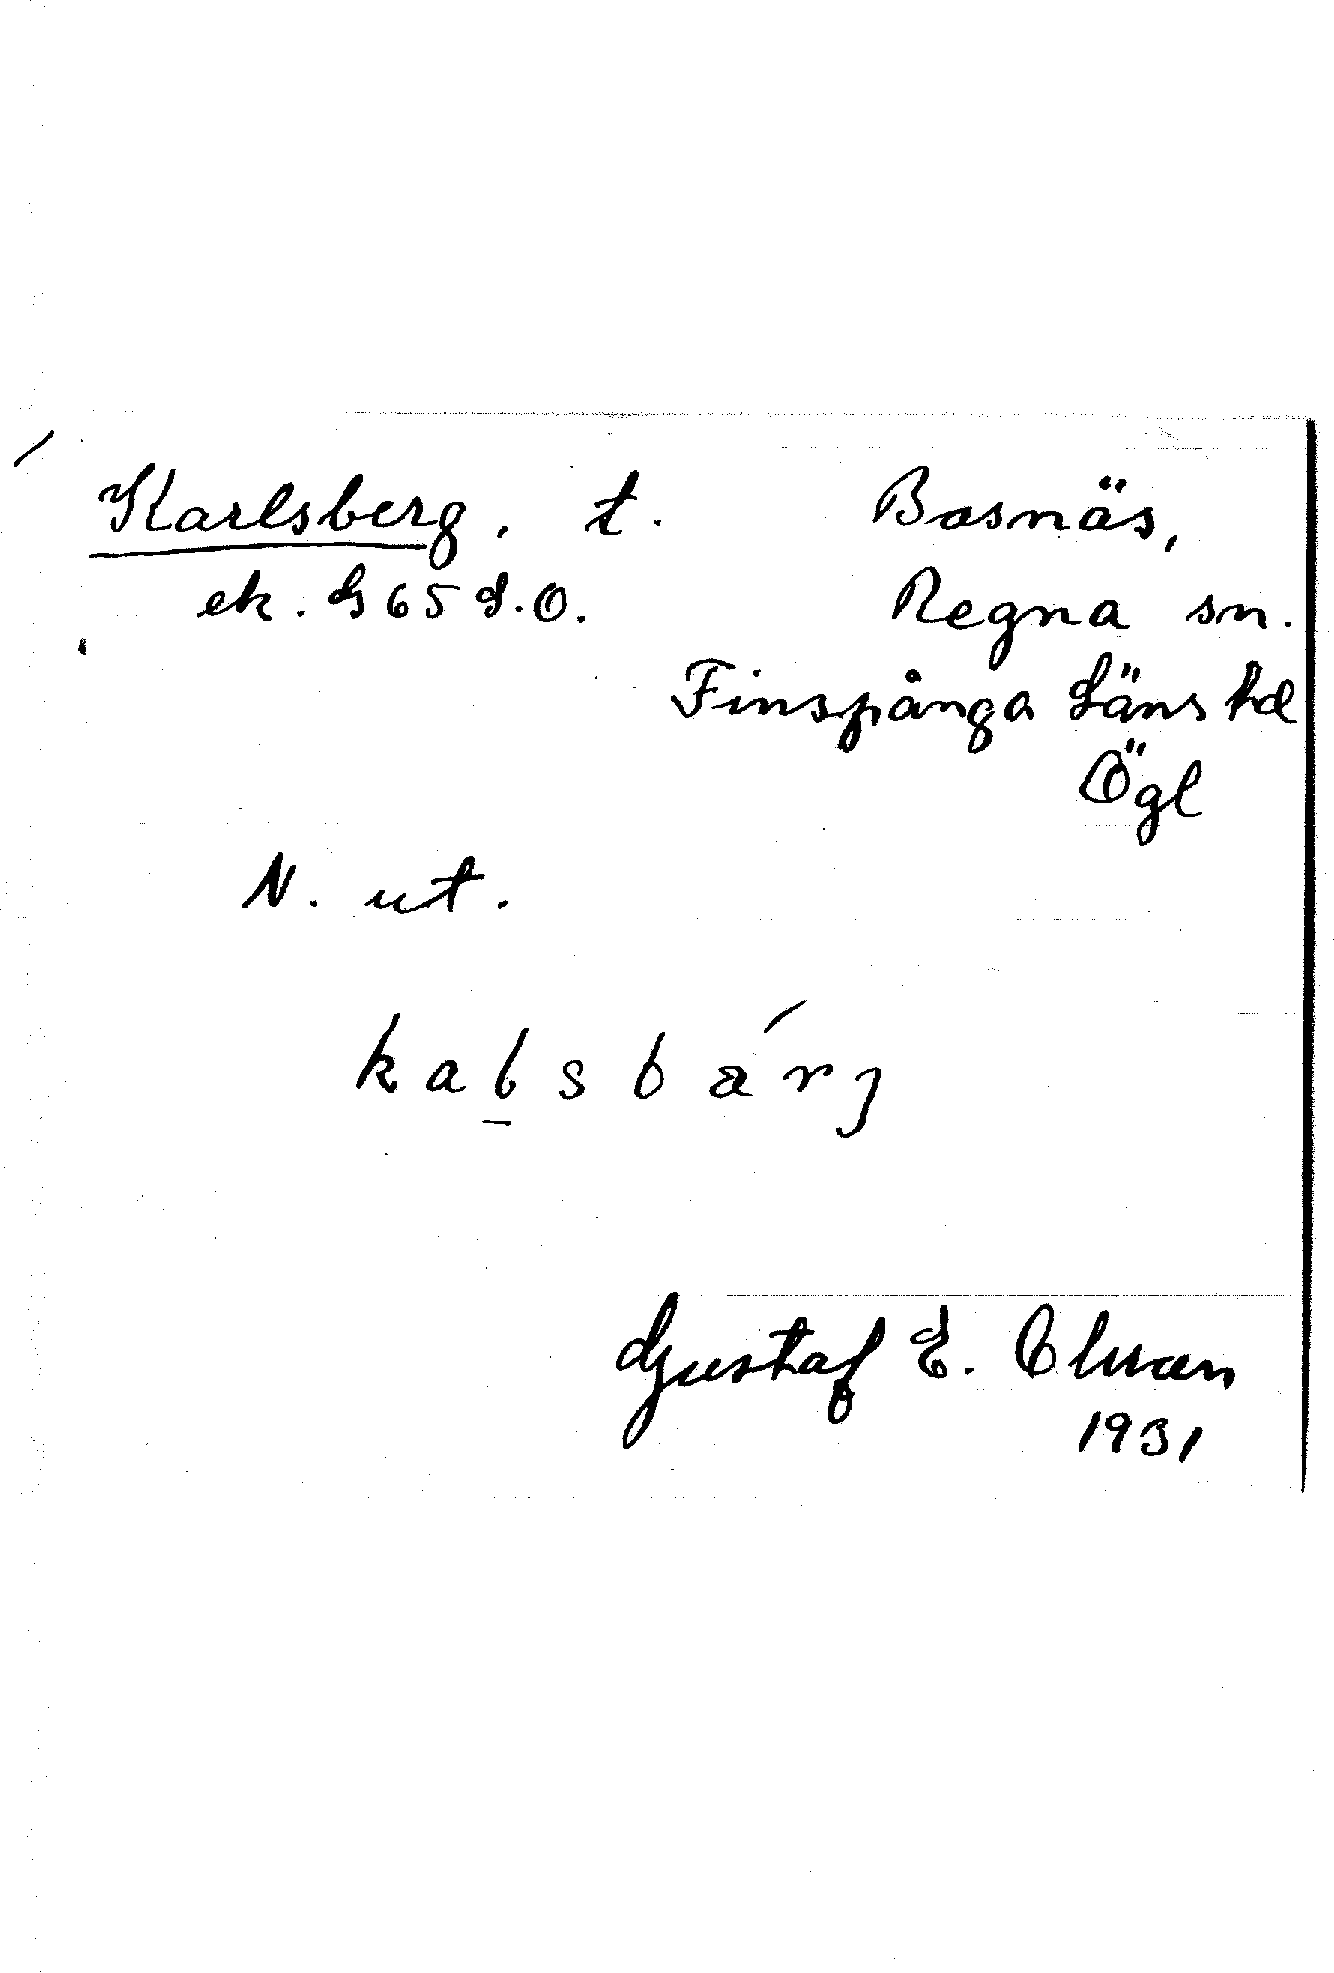 Karlsberg, t. Bosnäs,
ek. G 65 S.O. Regna sn.
Finspånga Läns hd
Ögl
N. ut.
kaɫsbárȷ
Gustaf E.
1931